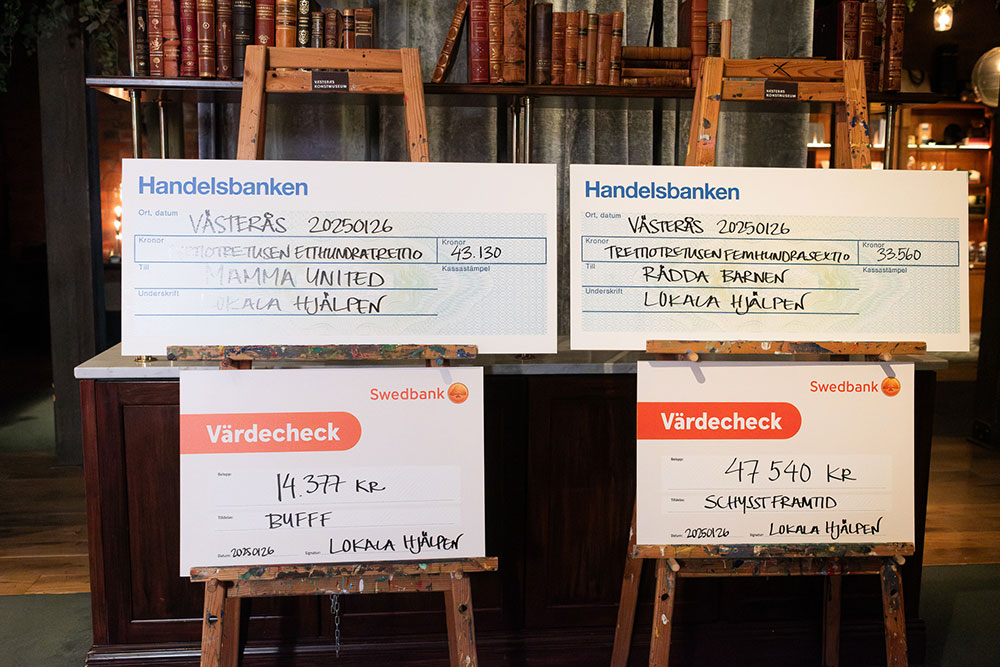 VÄSTERÅS
KONSTMUSEUM
VÄSTERÅS
KONSTMUSEUM
Handelsbanken
Ort, datum VÄSTERÅS 20250126
Kronor ETTHUNDRATRETTIO Kronor 43.130
Till MAMMA UNITED Kassastämpel
Underskrift LOKALA HJÄLPEN
Handelsbanken
Ort, datum VÄSTERÅS 20250126
Kronor TRETTIOTRETUSEN FEMHUNDRASEXTIO Kronor 33.560
Till RÄDDA BARNEN Kassastämpel
Underskrift LOKALA HJÄLPEN
Swedbank
Värdecheck
Belopp: 14.377 KR
Tilldelas: BUFFF
Datum: 20250126 Signatur: LOKALA HJÄLPEN
Swedbank
Värdecheck
Belopp: 47 540 KR
Tilldelas: SCHYSST FRAMTID
Datum: 20250126 Signatur: LOKALA HJÄLPEN